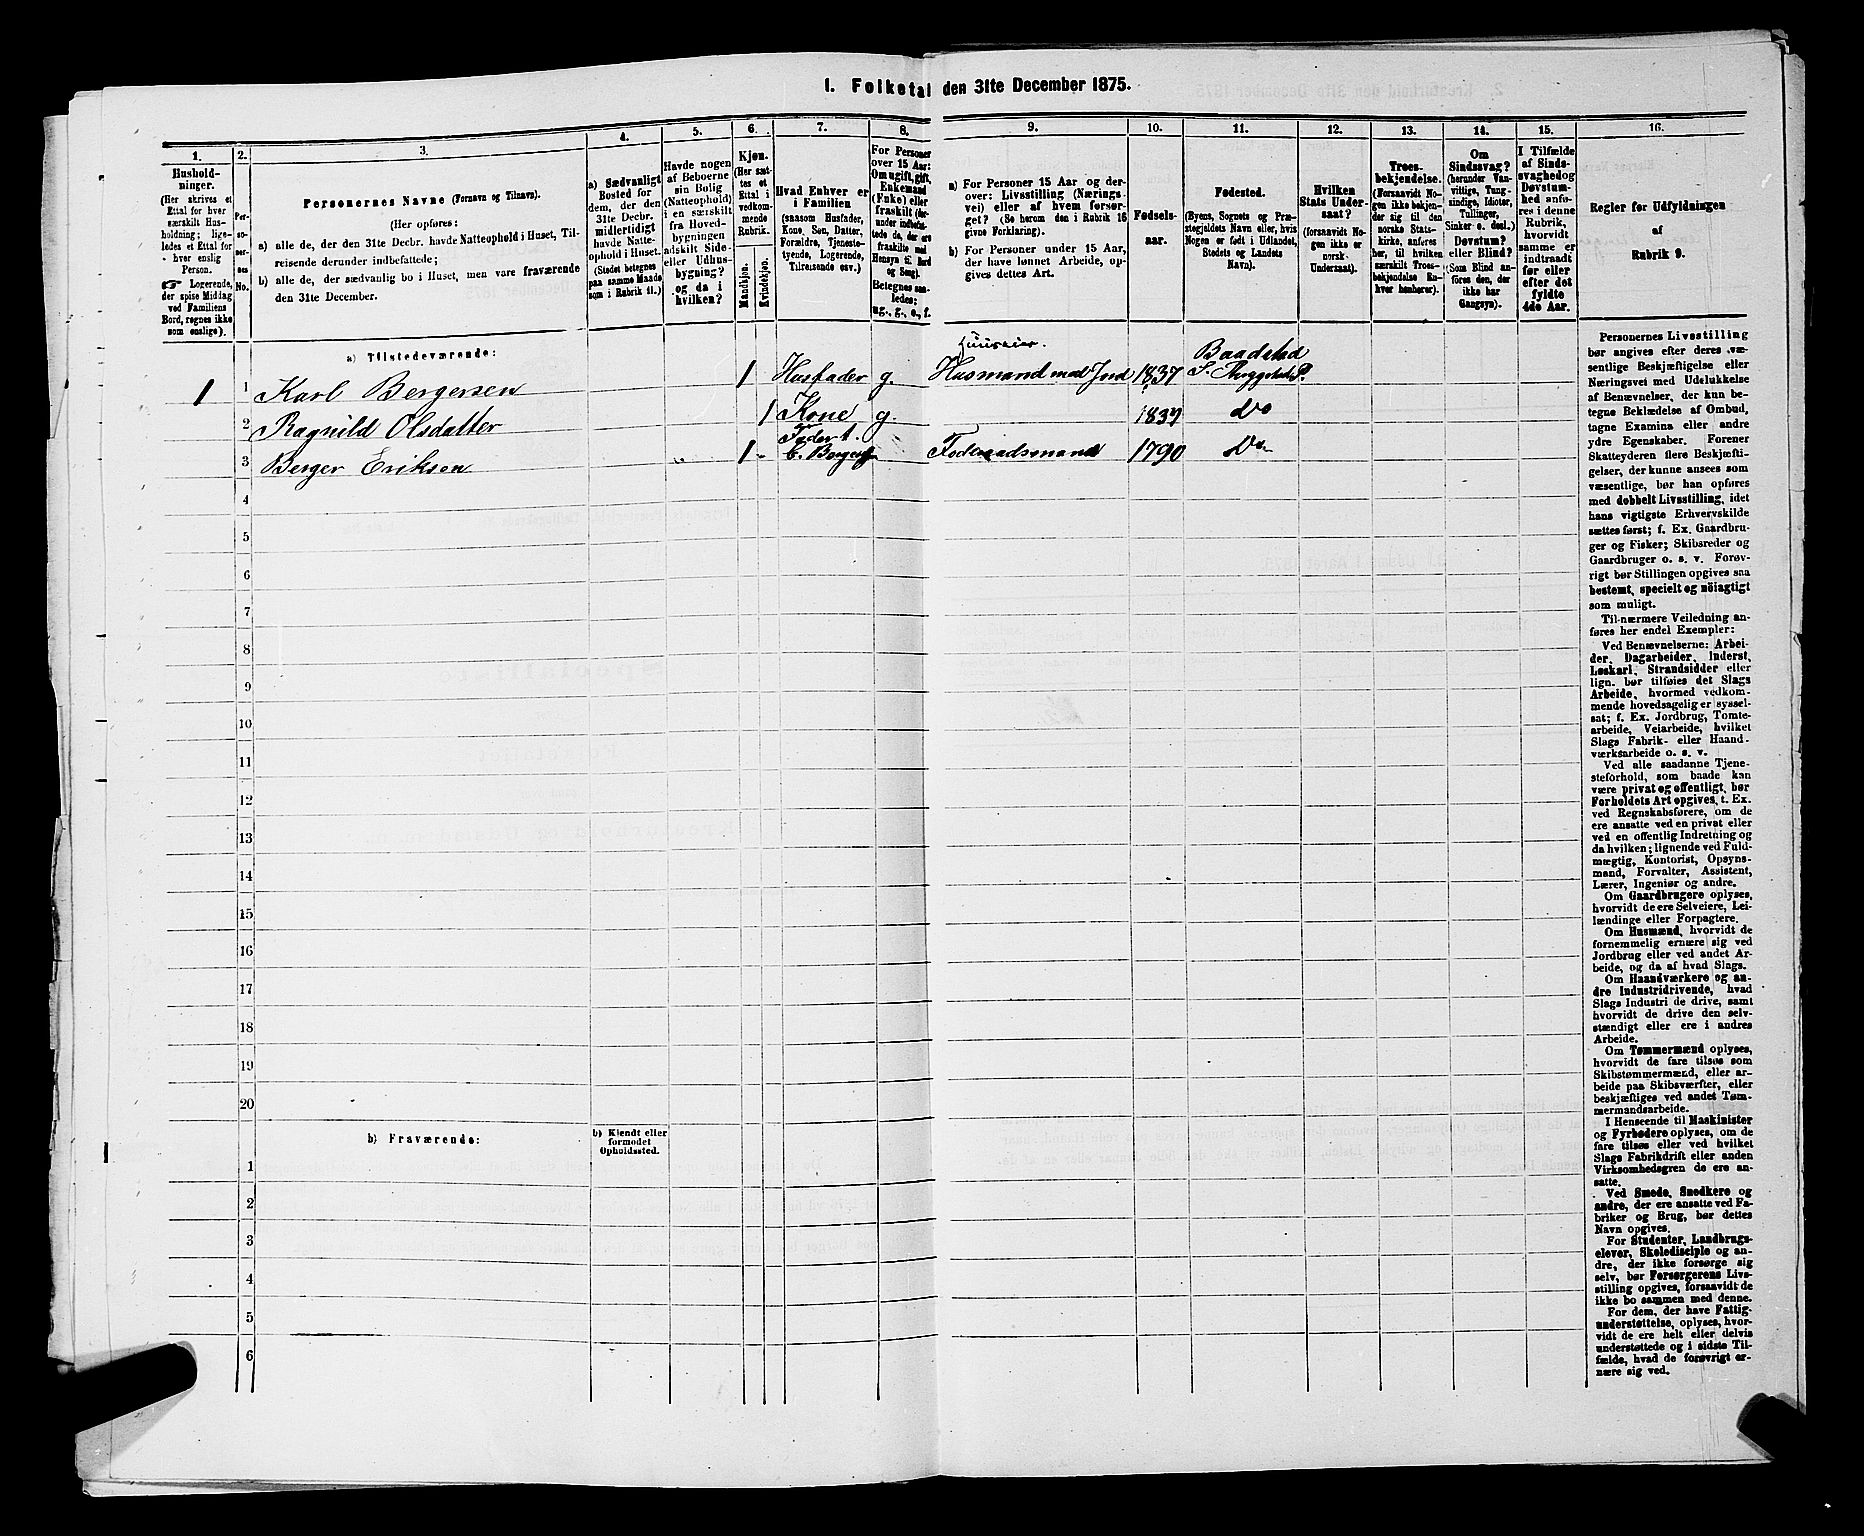 1. Folketal den 31te December 1875.
1.
Hushold-
ninger.
(Her skrives et
Ettal for hver
særskilt Hus-
holdning; lige-
ledes et Ettal for
hver enslig
Person.
☞ Logerende,
der spise Middag
ved Familiens
Bord, regnes ikke
som enslige).
2.
Per-
so-
ner-
nes
No.
3.
Personernes Navne (Fornavn og Tilnavn).
(Her opføres:
a) alle de, der den 31te Decbr. havde Natteophold i Huset, Til-
reisende derunder indbefattede;
b) alle de, der sædvanlig bo i Huset, men vare fraværende
den 31te December.
4.
a) Sædvanligt
Bosted for
dem, der den
31te Decbr.
midlertidigt
havde Natte-
ophold i Huset.
(Stedet betegnes
paa samme Maade
som i Rubrik 11.)
5.
Havde nogen
af Beboerne
sin Bolig
(Natteophold)
i en særskilt
fra Hoved-
bygningen
adskilt Side-
eller Udhus-
bygning?
og da i
hvilken?
6.
Kjøn.
(Her sæt-
tes et
Ettal i
vedkom-
mende
Rubrik.
Mandkjøn.
Kvindekjøn.
7.
Hvad Enhver er
i Familien
(saasom Husfader,
Kone, Søn, Datter,
Forældre, Tjeneste-
tyende, Logerende,
Tilreisende osv.)
8.
For Personer
over 15 Aar:
Om ugift, gift,
Enkemand
(Enke) eller
fraskilt (her-
under indbefat-
tede de, der ere
fraskilte med
Hensyn til Bord
og Seng).
Betegnes saa-
ledes:
ug., g., e., f.
9.
a) For Personer 15 Aar og der-
over: Livsstilling (Nærings-
vei) eller af hvem forsør-
get? (Se herom den i Rubrik 16
givne Forklaring).
b) For Personer under 15 Aar,
der have lønnet Arbeide, op-
gives dettes Art.
10.
Fødsels-
aar.
11.
Fødested.
(Byens, Sognets og Præ-
stegjeldets Navn eller, hvis
Nogen er født i Udlandet,
Stedets og Landets
Navn).
12.
Hvilken
Stats Under-
saat?
(forsaavidt No-
gen ikke er
norsk
Undersaat).
13.
Troes-
bekjendelse.
(Forsaavidt No-
gen ikke bekjen-
der sig til den
norske Stats-
kirke, anføres
her, til hvilken
særskilt Troes-
bekjendelse En-
hver henhører).
14.
Om
Sindssvag?
(herunder Van-
vittige, Tung-
sindige, Idioter,
Tullinger,
Sinker o. desl.)
Døvstum?
eller Blind?
(Som Blind an-
føres den, der
ikke har
Gangsyn).
15.
I Tilfælde
af Sinds-
svaghed og
Døvstum-
hed anfø-
res i denne
Rubrik,
hvorvidt
samme er
indtraadt
før eller
efter det
fyldte
4de Aar.
16.
Regler for Udfyldningen
af
Rubrik 9.
a) Tilstedeværende:
Huuseier.
Baadstad
1 1 Karl Bergersen 1 Husfader g. Husmand med Jord 1837 S. Thrygstad P.
2 Ragnild Olsdatter 1 Kone g. 1837 Do
Fader t.
3 Berger Eriksen 1 C. Bergers Føderaadsmand 1790 Do
4
5
6
7
8
9
10
11
12
13
14
15
16
17
18
19
20
b) Fraværende:
b) Kjendt eller
formodet
Opholdssted.
1
2
3
4
5
6
Personernes Livsstilling
bør angives efter deres væ-
sentlige Beskjæftigelse eller
Næringsvei med Udelukkelse
af Benævnelser, der kun be-
tegne Beklædelse af Ombud,
tagne Examina eller andre
ydre Egenskaber. Forener
Skatteyderen flere Beskjæfti-
gelser, der kunne ansees som
væsentlige, bør han opføres
med dobbelt Livsstilling, idet
hans vigtigste Erhvervskilde
sættes først; f. Ex. Gaardbru-
ger og Fisker; Skibsreder og
Gaardbruger o. s. v. Forøv-
rigt bør Stillingen opgives saa
bestemt, specielt og nöiagtigt
som muligt.
Til nærmere Veiledning an-
føres her endel Exempler:
Ved Benævnelserne: Arbei-
der, Dagarbeider, Inderst,
Løskarl, Strandsidder eller
lign. bør tilføies det Slags
Arbeide, hvormed vedkom-
mende hovedsagelig er syssel-
sat; f. Ex. Jordbrug, Tomte-
arbeide, Veiarbeide, hvilket
Slags Fabrik- eller Haand-
værksarbeide o. s. v.
Ved alle saadanne Tjene-
steforhold, som baade kan
være privat og offentligt, bør
Forholdets Art opgives, t. Ex.
ved Regnskabsførere, om de
ere ansatte ved en privat eller
ved en offentlig Indretning og
da hvilken; lignende ved Fuld-
mægtig, Kontorist, Opsyns-
mand, Forvalter, Assistent,
Lærer, Ingeniør og andre.
Om Gaardbrugere oplyses,
hvorvidt de ere Selveiere, Lei-
lændinge eller Forpagtere.
Om Husmænd, hvorvidt de
fornemmelig ernære sig ved
Jordbrug eller ved andet Ar-
beide, og da af hvad Slags.
Om Haandværkere og an-
dre Industridrivende, hvad
Slags Industri de drive, samt
hvorvidt de drive den selv-
stændigt eller ere i andres
Arbeide.
Om Tømmermænd oplyses,
hvorvidt de fare tilsøs som
Skibstømmermænd, eller ar-
beide paa Skibsværfter, eller
beskjæftiges ved andet Tøm-
mermandsarbeide.
I Henseende til Maskinister
og Fyrbødere oplyses, om de
fare tilsøs eller ved hvilket
Slags Fabrikdrift eller anden
Virksomhedsgren de ere an-
satte.
Ved Smede, Snedkere og
andre, der ere ansatte ved Fa-
briker og Brug, bør dettes
Navn opgives.
For Studenter, Landbrugs-
elever, Skoledisciple og an-
dre, der ikke forsørge sig
selv, bør Forsørgerens Livs-
stilling opgives, forsaavidt de
ikke bo sammen med denne.
For dem, der have Fattig-
understøttelse, oplyses, hvor-
vidt de ere helt eller delvis
understøttede og i sidste Til-
fælde, hvad de forøvrigt er-
nære sig ved.